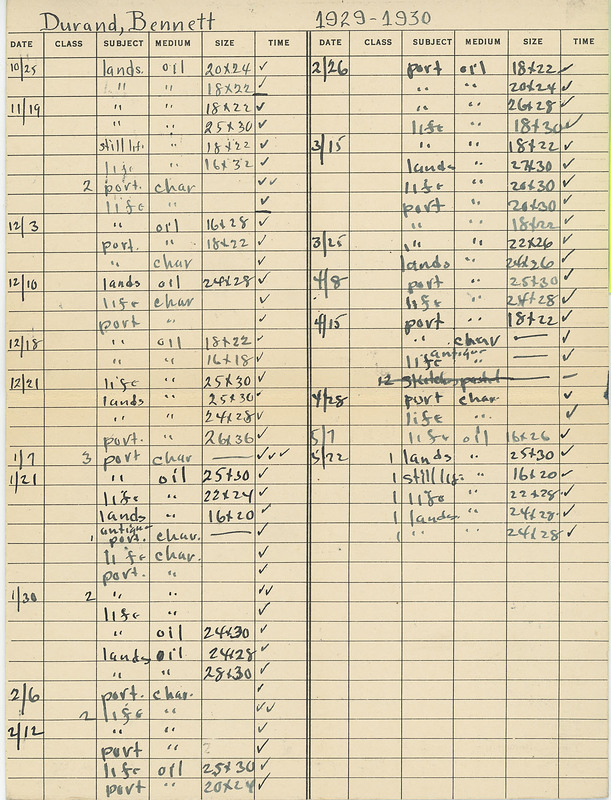 Durand, Bennett 1929-1930
DATE CLASS SUBJECT MEDIUM SIZE TIME DATE CLASS SUBJECT MEDIUM SIZE TIME
10/25 lands. oil 20x24 ✓
" " 18x22 ✓
11/19 " " 18x22 ✓
" " 25x30 ✓
still life. " 18x22 ✓
life " 16x32 ✓
2 port. char ✓✓
life " ✓
12/3 " oil 16x28 ✓
port. " 18x22 ✓
" char ✓
12/10 lands oil 24x28 ✓
life char ✓
port " ✓
12/18 " oil 18x22 ✓
" " 16x18 ✓
12/21 life " 25x30 ✓
lands " 25x30 ✓
" " 24x28 ✓
port. " 26x36 ✓
1/7 3 port char — ✓✓✓
1/21 " oil 25x30 ✓
life " 22x24 ✓
lands " 16x20 ✓
antique
port. char. — ✓
life char. ✓
port. " ✓
1/30 2 " " ✓✓
life " ✓
" oil 24x30 ✓
lands oil 24x28 ✓
" " 28x30 ✓
2/6 port. char. ✓
2 life " ✓✓
2/12 " " ✓
port " ? ✓
life oil 25x30 ✓
port " 20x24 ✓
2/26 port oil 18x22 ✓
" " 20x24 ✓
" " 26x28 ✓
life " 18x30 ✓
3/15 " " 18x22 ✓
lands " 27x30 ✓
life " 20x30 ✓
port " 20x30 ✓
" " 18x22 ✓
3/25 " " 22x26 ✓
lands " 24x36 ✓
4/8 port " 25x30 ✓
life " 24x28 ✓
4/15 port " 18x22 ✓
" char — ✓
antique
life " — ✓
12 sketches pastel —
4/28 port char. ✓
life " ✓
5/7 life oil 16x26 ✓
5/22 1 lands " 25x30 ✓
1 still life " 16x20 ✓
1 life " 22x28 ✓
1 lands " 24x28 ✓
1 " " 24x28 ✓